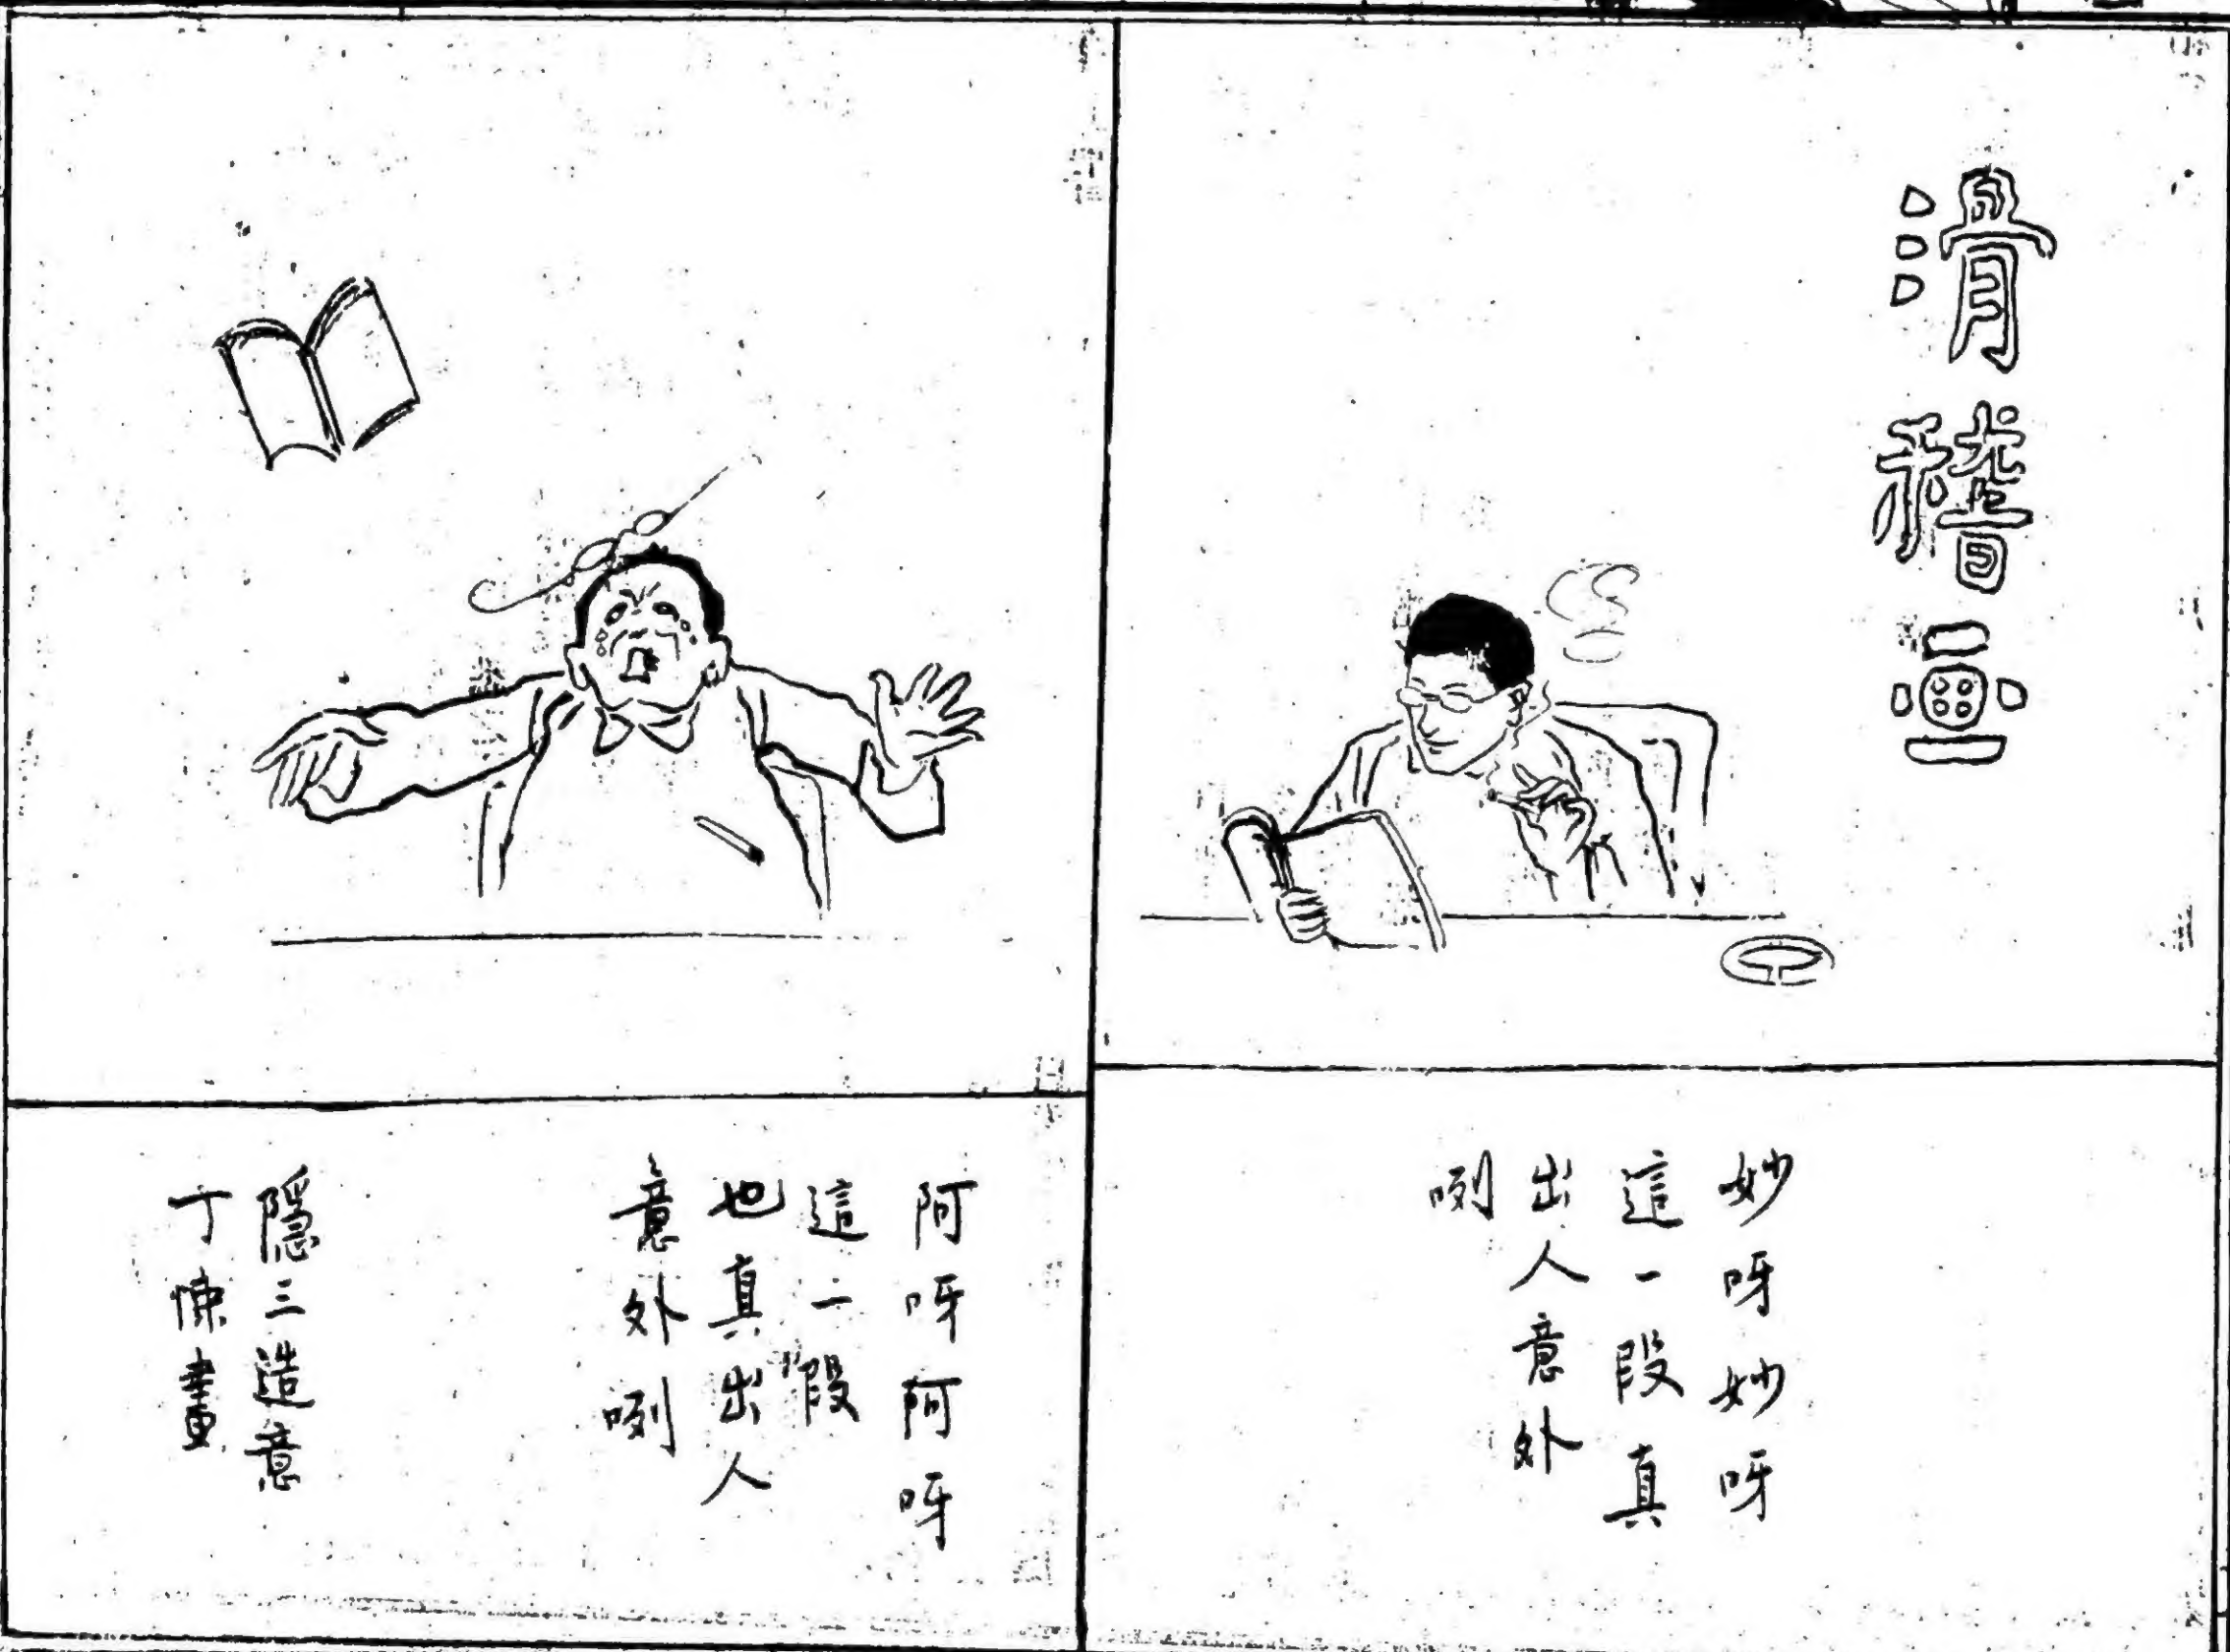 滑稽畫
妙呀妙呀
這一段真
出人意外
咧
阿呀阿呀
這一段
也真出人
意外咧
隱三造意
丁悚畫